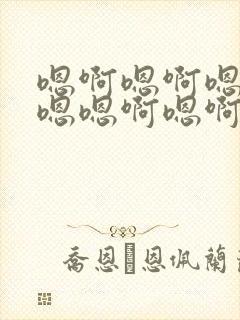 嗯啊嗯啊嗯
嗯嗯啊嗯啊
喬恩恩佩蘭